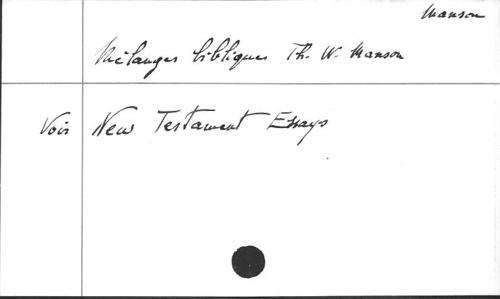 Manson
Mélanges bibliques Th. W. Manson
Voir New Testament Essays